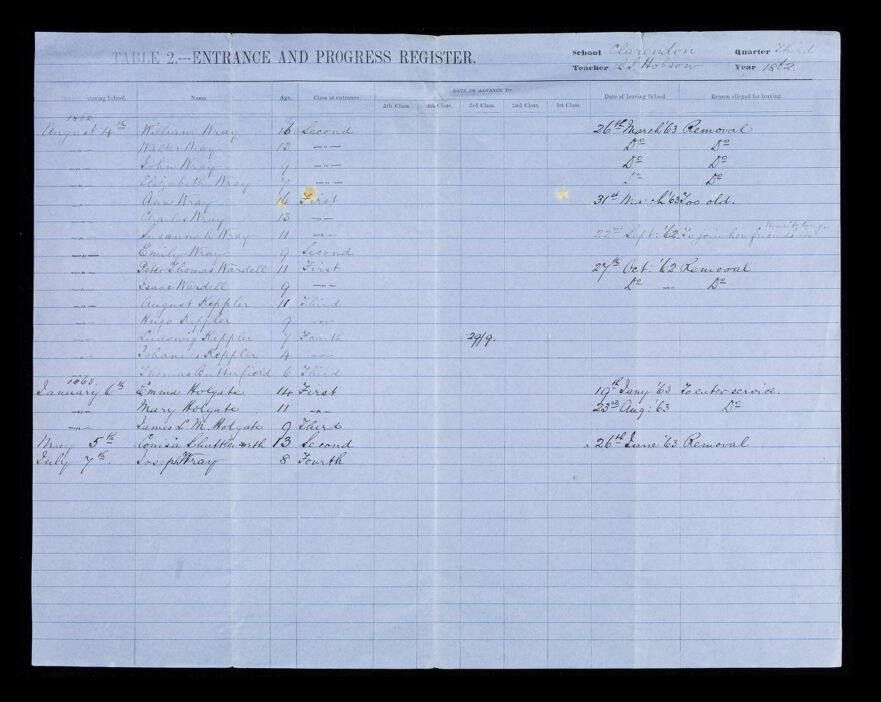 TABLE 2.—ENTRANCE AND PROGRESS REGISTER.
School Clarendon Quarter Third
Teacher Hobson Year 1862
entering School. Name. Age. Class at entrance. DATE OF ADVANCE TO Date of leaving School. Reason alleged for leaving.
5th Class. 4th Class. 3rd Class. 2nd Class. 1st Class.
1862
August 4th William Wray 16 Second 26th March '63 Removal
—"— Walter Wray 13 —"— Do Do
—"— John Wray 9 —"— Do Do
—"— Elizabeth Wray —"— Do
—"— Ann Wray 16 First 31st March '63 Too old.
—"— Charles Wray 13 —"—
—"— Susannah Wray 11 —"— 22nd Sept: '62 To join her friends in
—"— Emily Wray 9 Second
—"— Peter Thomas Wardell 11 First 27th Oct: '62 Removal
—"— Isaac Wardell 9 —"— Do —"— Do
—"— August Keppler 11 Third
—"— Hugo Keppler 9 —"—
—"— Ludowig Keppler 7 Fourth 29/9.
—"— Keppler 4 —"—
—"— Thomas Butterfield 6 Third
1863.
January 6th Emma Holgate 14 First 19th Jany '63 To enter service.
—"— Mary Holgate 11 —"— 23rd Aug: '63 Do
—"— James L. M. Holgate 9 Third
May 5th Louisa Shuttleworth 13 Second 26th June '63 Removal
July 7th. Joseph Wray 8 Fourth